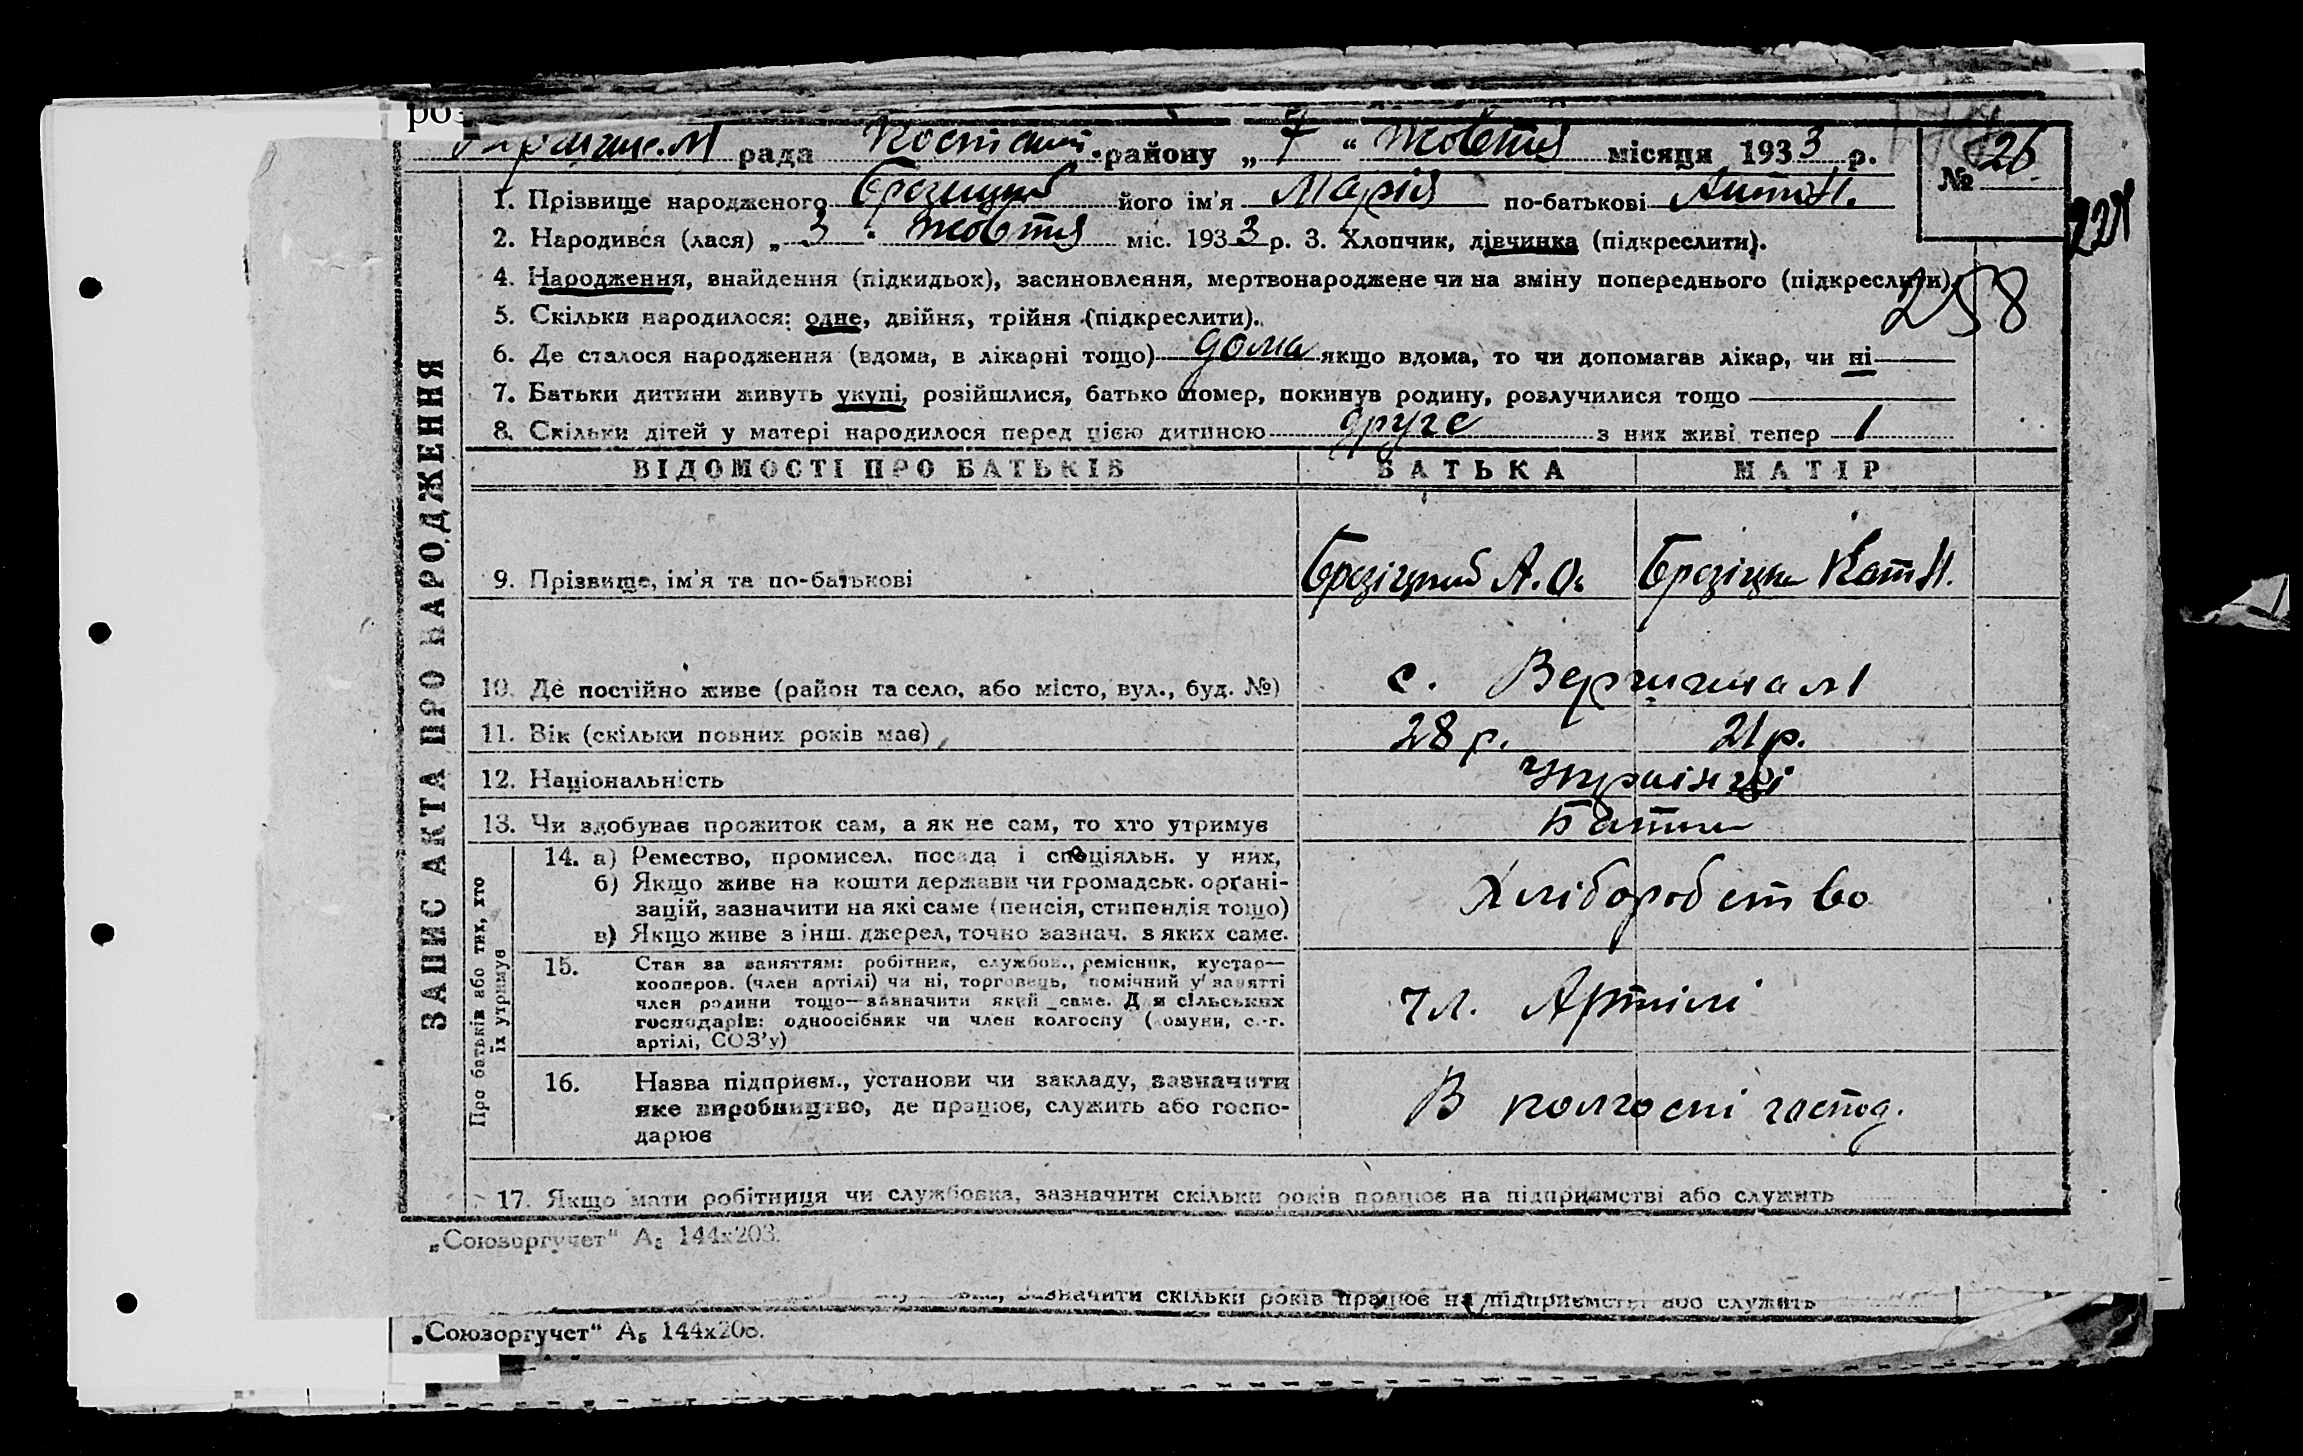 роз
рада Костянт. району „ 7 “ Жовтня місяця 193 3 р.
№ 26.
1. Прізвище народженого його ім'я Марія по-батькові Антон.
2. Народився (лася) „ 3 “ Жовтня міс. 193 3 р. 3. Хлопчик, дівчинка (підкреслити).
221
4. Народження, знайдення (підкидьок), засиновлення, мертвонароджене чи на зміну попереднього (підкреслити).
258
5. Скільки народилося: одне, двійня, трійня (підкреслити).
6. Де сталося народження (вдома, в лікарні тощо) дома якщо вдома, то чи допомагав лікар, чи ні
7. Батьки дитини живуть укупі, розійшлися, батько помер, покинув родину, розлучилися тощо
8. Скільки дітей у матері народилося перед цією дитиною друге з них живі тепер 1
ЗАПИС АКТА ПРО НАРОДЖЕННЯ
ВІДОМОСТІ ПРО БАТЬКІВ БАТЬКА МАТІР
9. Прізвище, ім'я та по-батькові Брезіцкий А. О. Брезіцка Кат. Н.
10. Де постійно живе (район та село, або місто, вул., буд. №) с.
11. Вік (скільки повних років має) 28 р. 21 р.
12. Національність українці
13. Чи здобуває прожиток сам, а як не сам, то хто утримує
Про батьків або тих, хто їх утримує
14. а) Ремество, промисел, посада і спеціяльн. у них,
б) Якщо живе на кошти держави чи громадськ. органі-
зацій, зазначити на які саме (пенсія, стипендія тощо)
в) Якщо живе з інш. джерел, точно зазнач. з яких саме.
Хліборобство
15. Стан за заняттям: робітник, службов., ремісник, кустар—
кооперов. (член артілі) чи ні, торговець, помічний у занятті
член родини тощо—зазначити який саме. Для сільських
господарів: одноосібник чи член колгоспу (комуни, с.-г.
артілі, СОЗ'у)
чл. Артілі
16. Назва підприєм., установи чи закладу, зазначити
яке виробництво, де працює, служить або госпо-
дарює
В колгоспі господ.
17. Якщо мати робітниця чи службовка, зазначити скільки років працює на підприємстві або служить
„Союзоргучет“ А₅ 144х203.
зазначити скільки років працює на підприємстві або служить
„Союзоргучет“ А₅ 144х203.